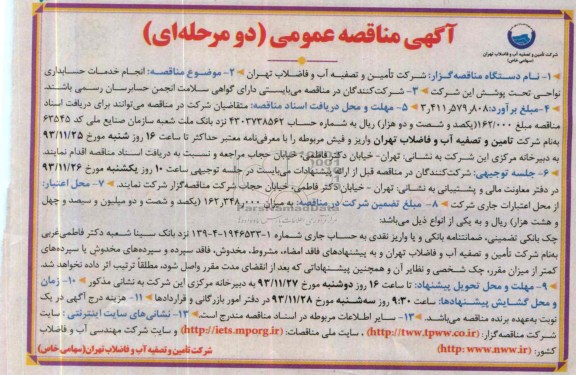 آگهی مناقصه عمومی (دو مرحله‌ای)
شرکت تأمین و تصفیه آب و فاضلاب تهران
(سهامی خاص)
۱- نام دستگاه مناقصه‌گزار: شرکت تأمین و تصفیه آب و فاضلاب تهران ۲- موضوع مناقصه: انجام خدمات حسابداری
نواحی تحت پوشش این شرکت ۳- شرکت‌کنندگان در مناقصه می‌بایستی دارای گواهی سلامت انجمن حسابرسان رسمی باشند.
۴- مبلغ برآورد: ۳,۴۱۱,۵۷۹,۸۰۸ ۵- مهلت و محل دریافت اسناد مناقصه: متقاضیان شرکت در مناقصه می‌توانند برای دریافت اسناد
مناقصه مبلغ ۱۶۲/۰۰۰ (یکصد و شصت و دو هزار) ریال به شماره حساب ۴۳۰۳۷۳۸۵۶۲ نزد بانک ملت شعبه سازمان صنایع ملی کد ۶۳۵۴۵
به‌نام شرکت تامین و تصفیه آب و فاضلاب تهران واریز و فیش مربوطه را با معرفی‌نامه معتبر حداکثر تا ساعت ۱۶ روز شنبه مورخ ۹۳/۱۱/۲۵
به دبیرخانه مرکزی این شرکت به نشانی: تهران- خیابان دکتر فاطمی- خیابان حجاب مراجعه و نسبت به دریافت اسناد مناقصه اقدام نمایند.
۶- جلسه توجیهی: شرکت‌کنندگان در مناقصه قبل از ارائه پیشنهادات می‌بایست در جلسه توجیهی ساعت ۱۰ روز یکشنبه مورخ ۹۳/۱۱/۲۶
در دفتر معاونت مالی و پشتیبانی به نشانی: تهران - خیابان دکتر فاطمی- خیابان حجاب شرکت مناقصه‌گزار شرکت نمایند. ۷- محل اعتبار:
از محل اعتبارات جاری شرکت ۸- مبلغ تضمین شرکت در مناقصه: به میزان ۱۶۲,۳۴۸,۰۰۰ ریال (یکصد و شصت و دو میلیون و سیصد و چهل
و هشت هزار) ریال و به یکی از انواع ذیل می‌باشد:
چک بانکی تضمینی، ضمانتنامه بانکی و یا واریز نقدی به حساب جاری شماره ۱-۱۹۴۶۵۳۳-۴-۱۳۹ نزد بانک سینا شعبه دکتر فاطمی‌غربی
به‌نام شرکت تأمین و تصفیه آب و فاضلاب تهران و به پیشنهادهای فاقد امضاء، مشروط، مخدوش، فاقد سپرده و سپرده‌های مخدوش یا سپرده‌های
کمتر از میزان مقرر، چک شخصی و نظایر آن و همچنین پیشنهاداتی که بعد از انقضای مدت مقرر واصل شود، مطلقاً ترتیب اثر داده نخواهد شد.
۹- مهلت و محل تحویل پیشنهاد: تا ساعت ۱۶ روز دوشنبه مورخ ۹۳/۱۱/۲۷ به دبیرخانه مرکزی این شرکت به نشانی مذکور ۱۰- زمان
و محل گشایش پیشنهادها: ساعت ۹:۳۰ روز سه‌شنبه مورخ ۹۳/۱۱/۲۸ در دفتر امور بازرگانی و قراردادها ۱۱- هزینه درج آگهی در یک
نوبت به‌عهده برنده مناقصه می‌باشد. ۱۲- سایر اطلاعات مربوطه در اسناد مناقصه مندرج است. ۱۳- نشانی‌های سایت اینترنتی: سایت
شرکت مناقصه‌گزار: (http://tww.tpww.co.ir)، سایت ملی مناقصات: (http://iets.mporg.ir) و سایت شرکت مهندسی آب و فاضلاب
کشور: (http: www.nww.ir)
شرکت تامین و تصفیه آب و فاضلاب تهران (سهامی خاص)